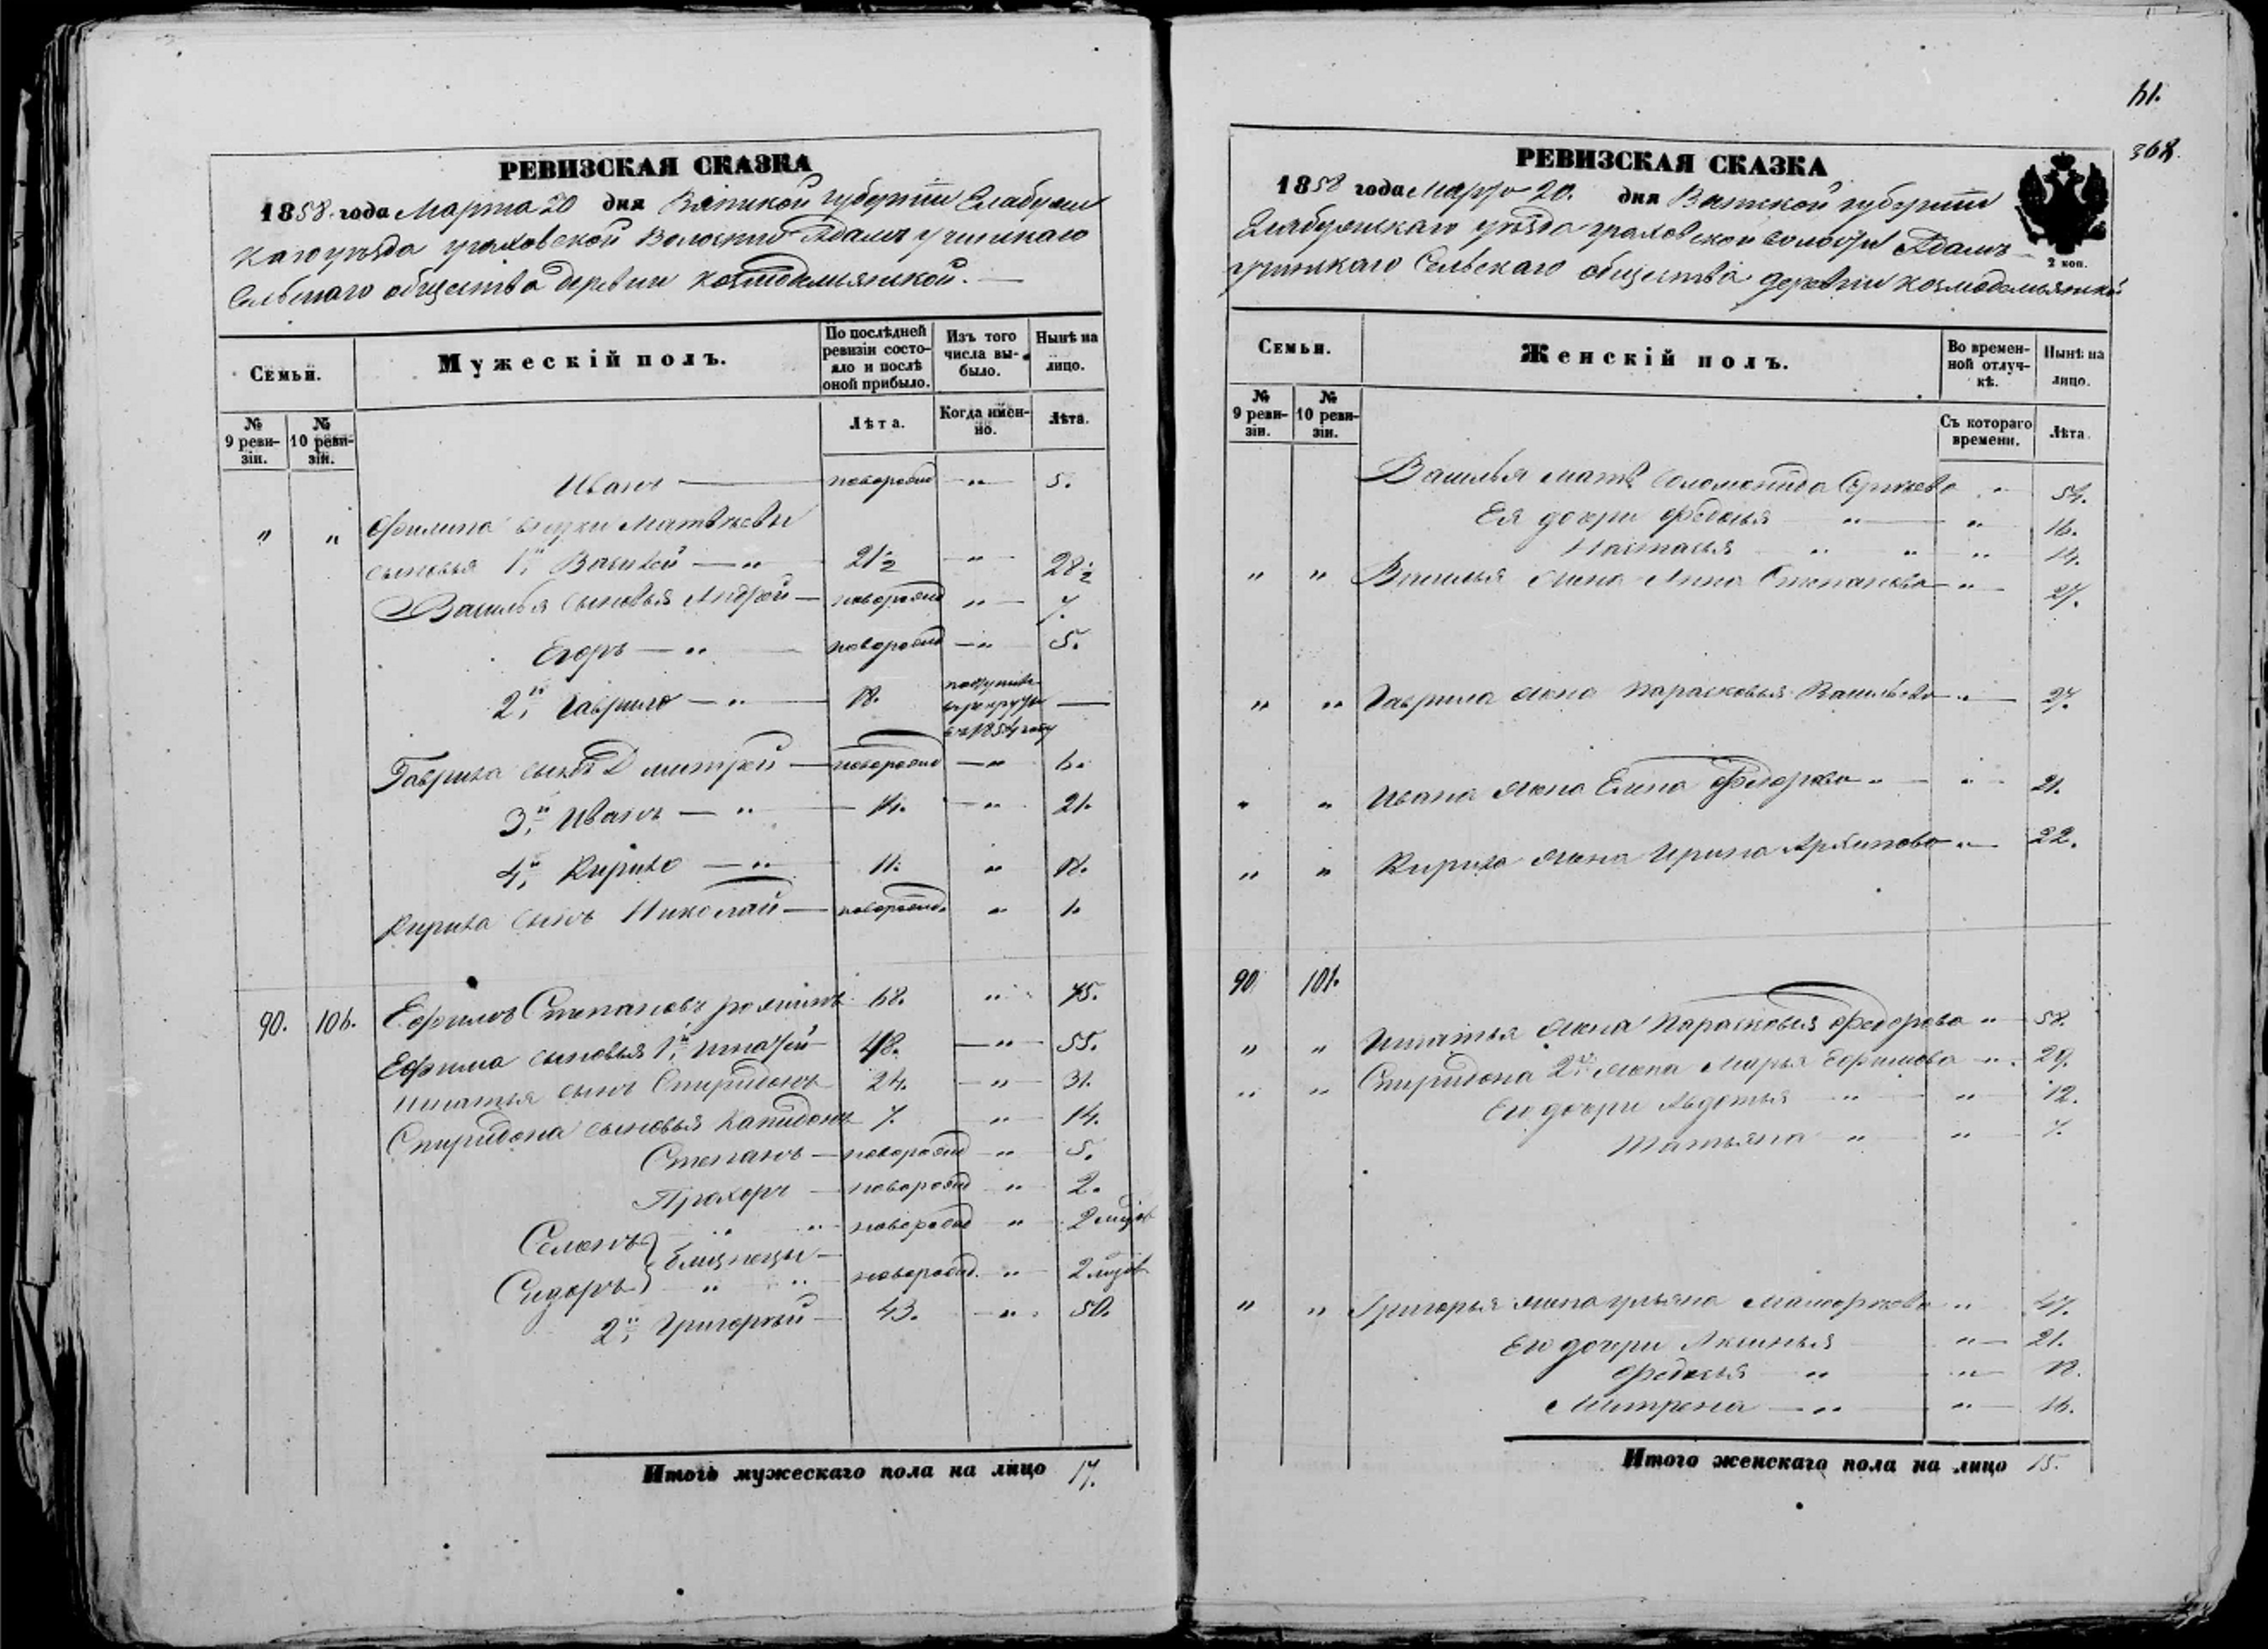 РЕВИЗСКАЯ СКАЗКА
1858 года Марта 20 дня Вятской губернiи Елабужс
каго уѣзда граховской Волости Адамъ учинскаго
Сельскаго общества деревни Козмодемьянской.
Семьи.
Мужескiй полъ.
По послѣдней ревизiи состояло и послѣ оной прибыло.
Изъ того числа выбыло.
Нынѣ на лицо.
№ 9 ревизiи.
№ 10 ревизiи.
Лѣта.
Когда именно.
Лѣта.
Иванъ — новорожд — " — 5.
" " Филипа внуки Матвѣевы
сыновья 1й Василей — " — 21½ — " — 28½
Василья сыновья Андрей — новорожд " — 7.
Егоръ — " — новорожд — " — 5.
2й Гаврило — " — 18. поступилъ в рекруты въ 1854 году —
Гаврила сынъ Дмитрей — новорожд — " 6.
3й Иванъ — " — 14. — " 21.
4й Кирило — " — 11. " 18.
Кирила сынъ Николай — новорожд. " 1.
90. 106. Ефимъ Степановъ 68. " 75.
Ефима сыновья 1й Игнатей 48. — " — 55.
Игнатья сынъ Спиридонъ 24. — " — 31.
Спиридона сыновья Капидонъ 7. " 14.
Степанъ — новорожд — " 5.
Прохоръ — новорожд " 2.
Семенъ " " новорожд " 2 мцов
близнецы —
Сидоръ " " новорожд. " 2 мцов
2й Григорей — 43. — " 50.
Итого мужескаго пола на лицо 17.
61.
368.
РЕВИЗСКАЯ СКАЗКА
1858 года Марта 20. дня Вятской губернiи
Елабужскаго уѣзда граховской волости Адамъ
учинскаго Сельскаго общества деревни Козмодемьянской
2 коп.
Семьи.
Женскiй полъ.
Во временной отлучкѣ.
Нынѣ на лицо.
№ 9 ревизiи.
№ 10 ревизiи.
Съ котораго времени.
Лѣта.
Василья мать Соломонида " 54.
Ея дочери Федосья " — " 16.
Настасья " " " 14.
" " Василья жена Анна Степанова — " — 27.
" " Гаврила жена Парасковья Васильева — " — 27.
" " Ивана жена Елена Федорова " — " 21.
" " Кирила жена Ирина Архипова — " — 22.
90 101.
" " Игнатья жена Парасковья Федорова " — 58.
" " Спиридона 2я жена Марья Ефимова " 29.
Его дочери Авдотья " " 12.
Татьяна " " 7.
" " Григорья жена ульяна " 47.
Его дочери Аксинья " — 21.
Федосья " " 18.
Митрена — " " 16.
Итого женскаго пола на лицо 15.